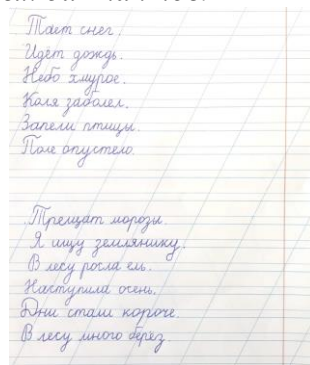 Тает снег.
Идёт дождь.
Небо хмурое.
Коля заболел.
Запели птицы.
Поле опустело.
Трещат морозы.
Я ищу землянику.
В лесу росла ель.
Наступила осень.
Дни стали короче.
В лесу много берёз.